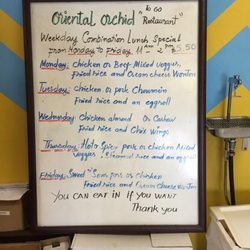 Oriental Orchid "To Go
Restaurant"
Weekday Combination Lunch Special
from Monday to Friday 11 AM - 2 PM $5.50
Monday: Chicken or Beef Mixed veggies,
fried rice and Cream cheese Wonton
Tuesday: Chicken or pork Chowmein
fried rice and an eggroll
Wednesday Chicken almond or Cashew
fried rice and Chix Wings
Thursday: Hot & Spicy pork or chicken Mixed
veggies, Steamed rice and an eggroll
Friday: Sweet & Sour pork or chicken
Fried rice and Cream Cheese Wonton
YOU CAN EAT IN IF YOU WANT
Thank you